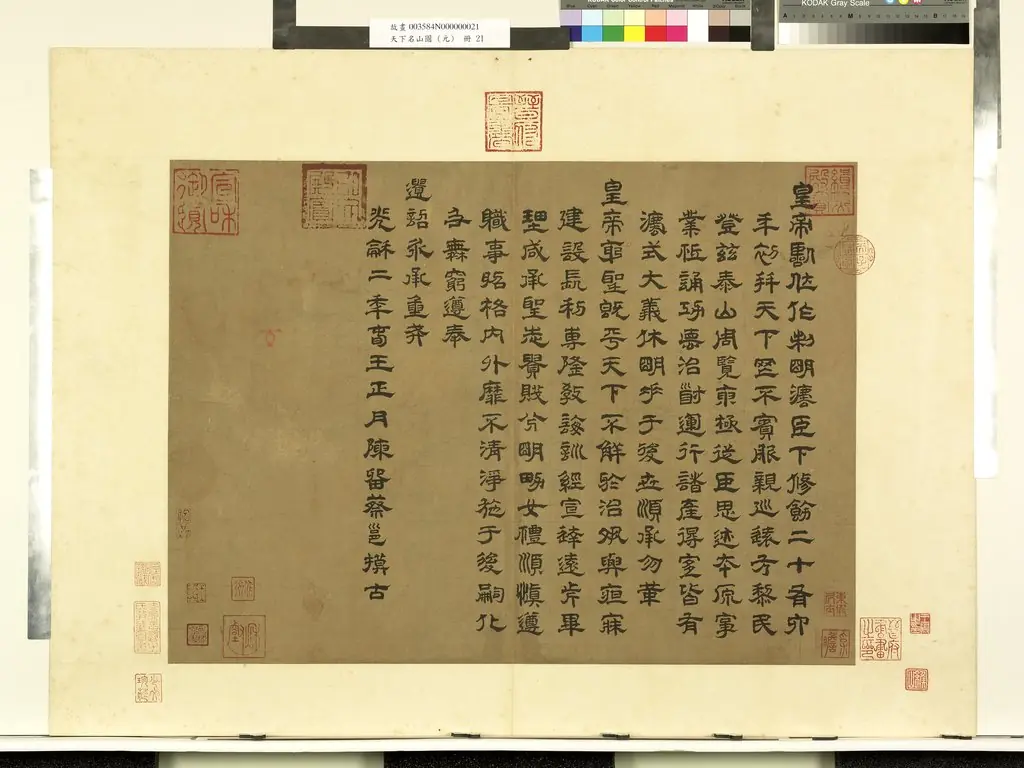 故畫 003584N000000021
天下名山圖（元） 冊 21
KODAK Gray Scale
皇帝臨位作制明灋臣下修飭二十有六
年初并天下罔不賓服親巡遠方黎民
登茲泰山周覽東極從臣思迹本原事
業祗誦功德治道運行諸產得宜皆有
灋式大義休明垂于後世順承勿革
皇帝躬聖既平天下不解於治夙興夜寐
建設長利專隆教誨訓經宣達遠近畢
理咸承聖志貴賤分明男女禮順慎遵
職事昭格內外靡不清淨施于後嗣化
及無窮遵奉
遺詔永承重戒
光龢二年春王正月陳留蔡邕摸古